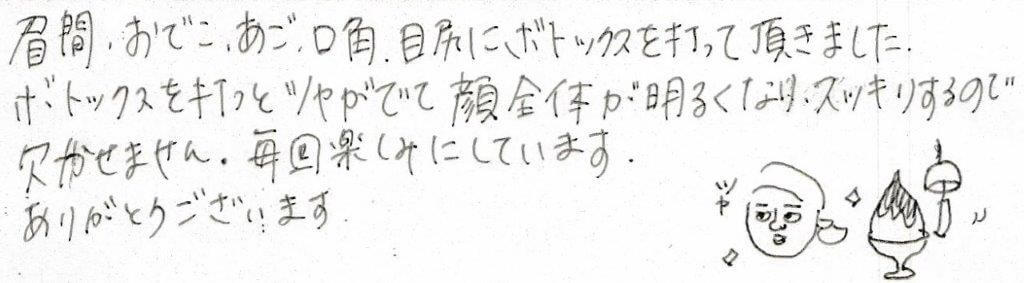 眉間、おでこ、あご、口角、目尻に、ボトックスを打って頂きました。
ボトックスを打つとツヤがでて顔全体が明るくなり、スッキリするので
欠かせません。毎回楽しみにしています。
ありがとうございます。
ツヤ